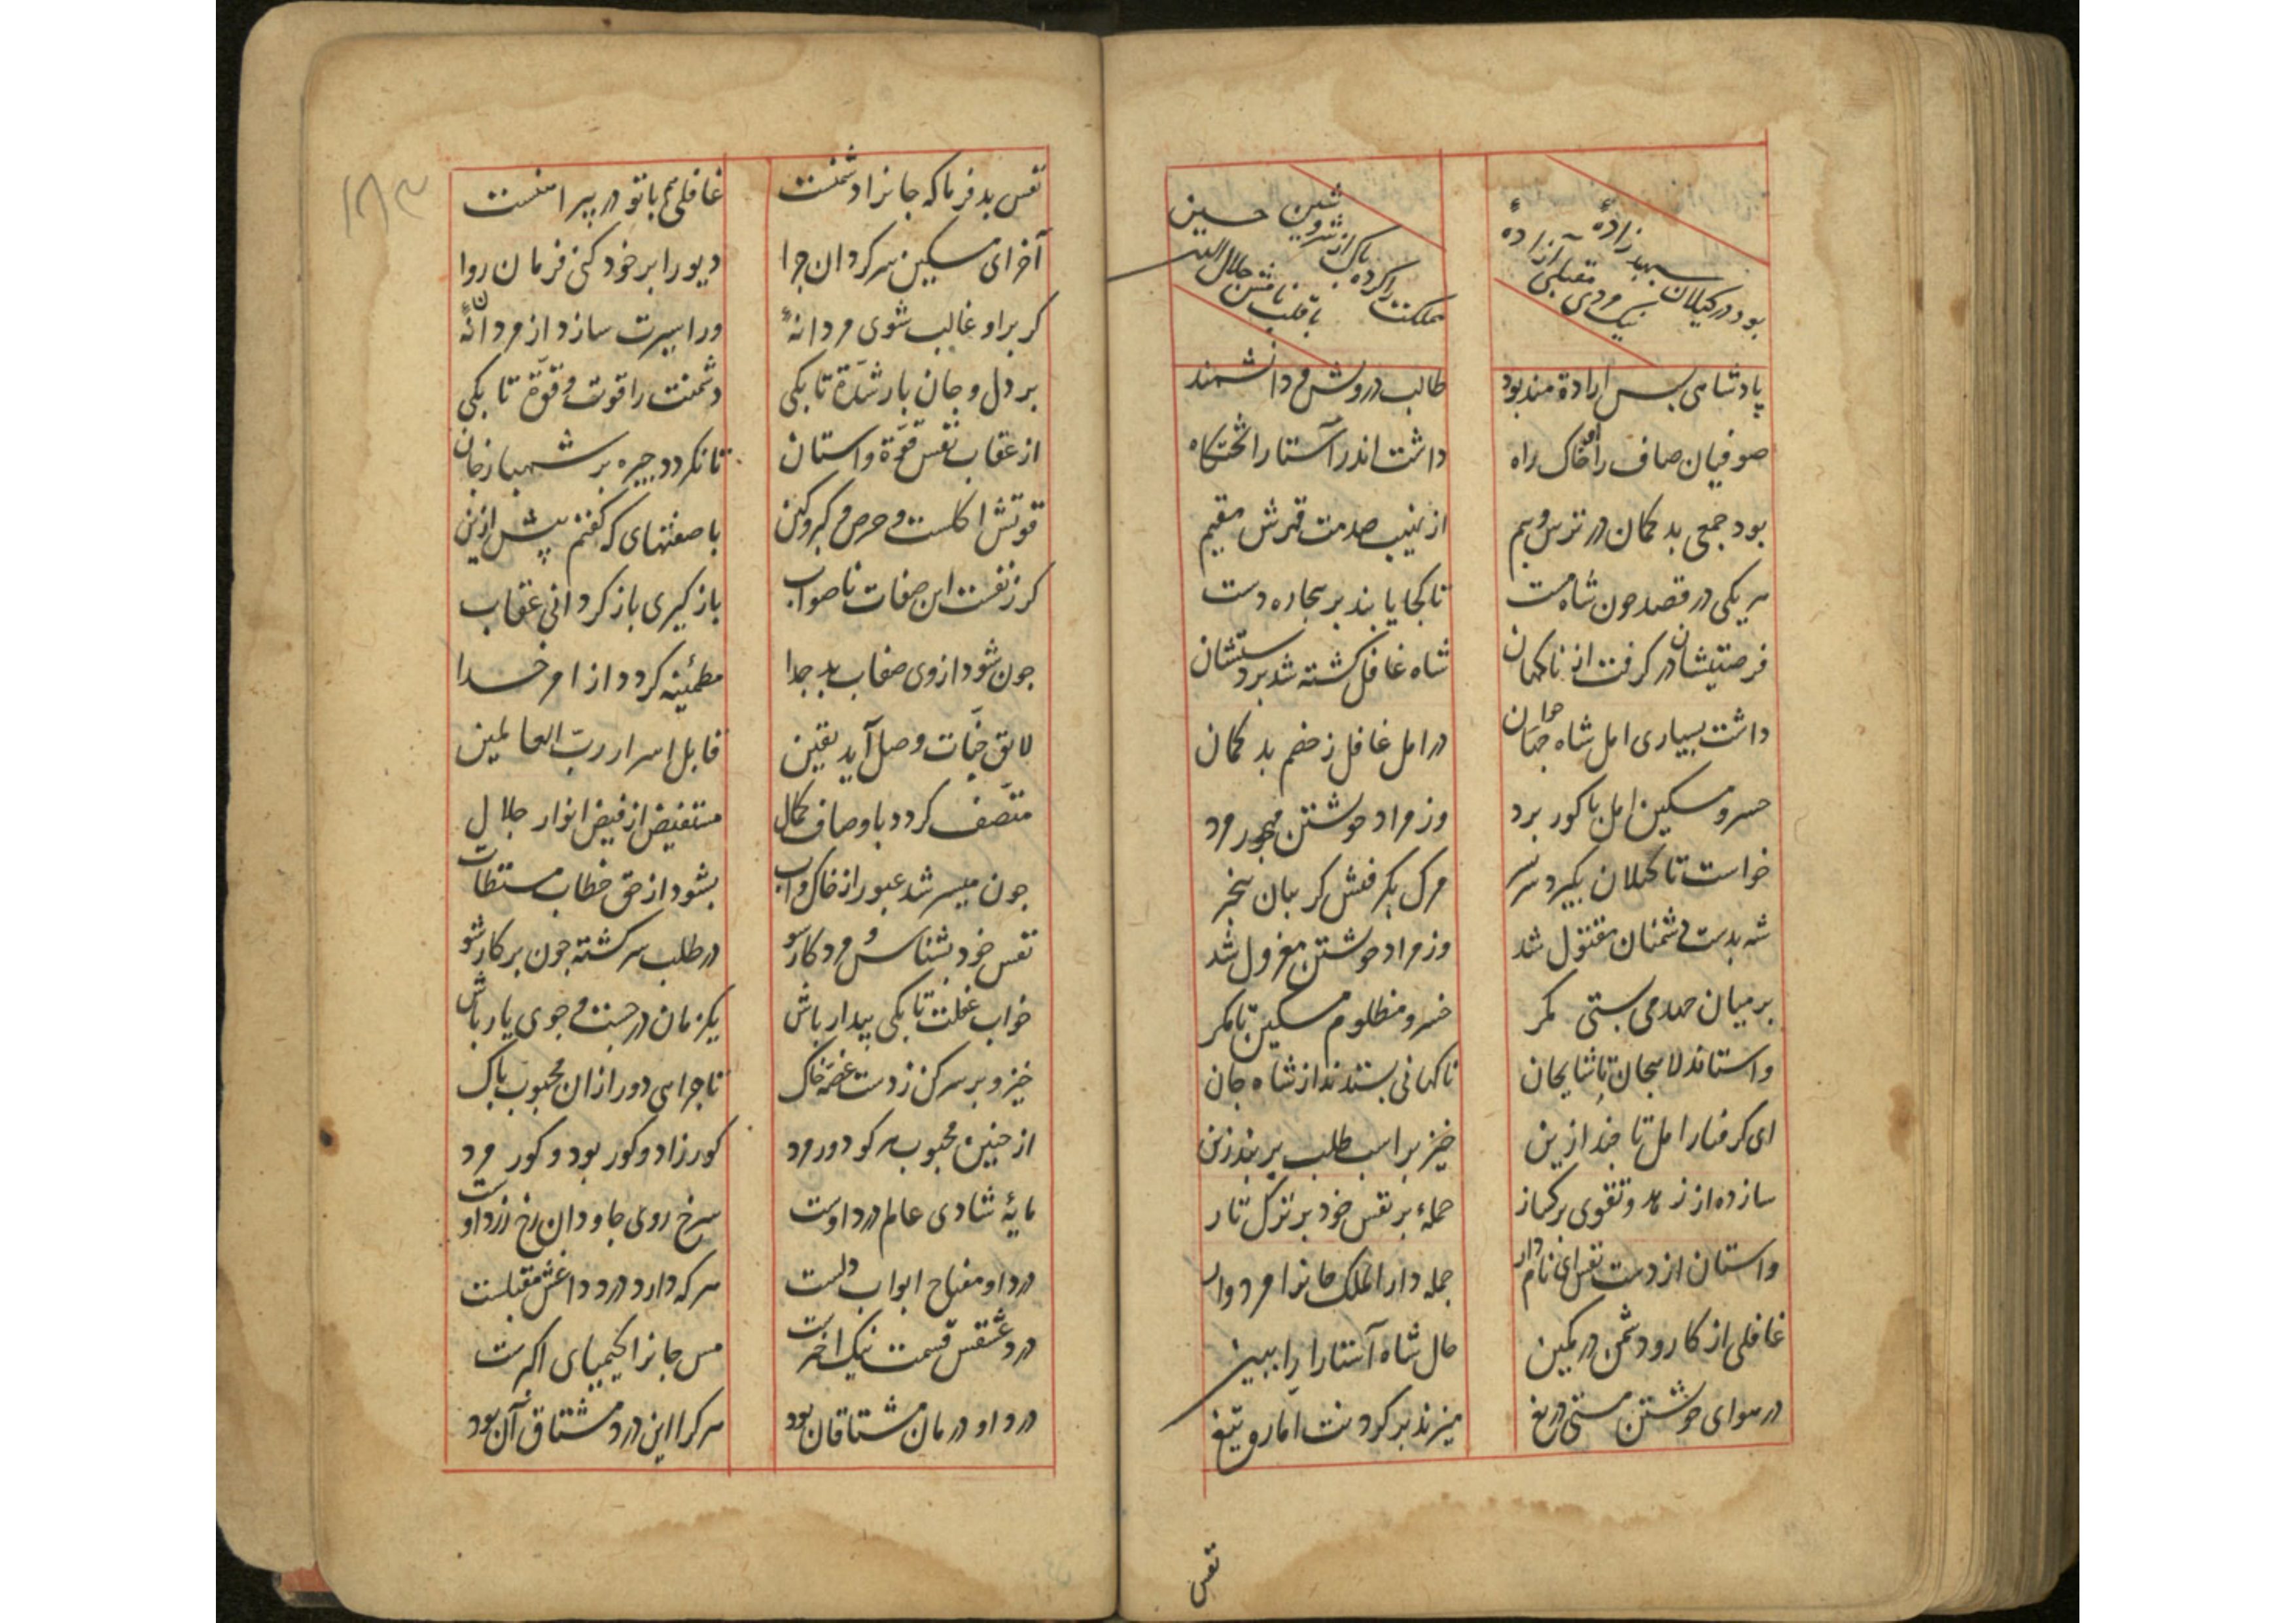 بود در کیلان سپهبد زادهٔ
نیک مردی مقبلی آزادهٔ
مملکت را کرده پاک از شر و شین
با قلب نامش جلال الدین حسین
پادشاهی بس ارادة مند بود طالب درویش و دانشمند
صوفیان صاف را او خاک راه داشت اندر آستارا تختکاه
بود جمعی بد کمان در ترس و بیم از نهیب صدمت قهرش مقیم
هر یکی در قصد جون شاه مست تا کجا یابند بر بیجاره دست
فرصتیشان در کرفت از ناکهان شاه غافل کشته شد بر دستشان
داشت بسیاری امل شاه جوان در امل غافل ز خصم بد کمان
خسرو مسکین امل با کور برد وز مراد خوشتن مهجور مرد
خواست تا کیلان بکیرد سر بسر مرک بکرفتش کریبان بیخبر
شه بدست دشمنان مقتول شد وز مراد خوشتن معزول شد
بر میان جهد می بستی کمر خسرو مظلوم مسکین تا مکر
واستاند لاهیجان با شایجان ناکهانی بستدند از شاه جان
ای کرفتار امل تا چند ازین خیز بر اسب طلب بر بند زین
ساز ده از زهد و تقوی برکساز حملهٔ بر نفس خود بر ترک تار
واستان از دست نفس ای نامدار جمله دار الملک جانرا مردوار
غافلی از کار و دشمن در کمین حال شاه آستارا را ببین
در هوای خوشتن مستی دریغ میزند بر کردنت اماره تیغ
نفس
۱۸۳
نفس بد فرما که جانرا دشمنست غافلی هم با تو در پیراهنست
آخر ای مسکین سرکردان چرا دیو را بر خود کنی فرمان روا
کر بر او غالب شوی مردانهٔ ور اسیرت سازد از مردان نهٔ
بر دل و جان بار شدّة تا بکی دشمنت را قوت و قوّة تا بکی
از عقاب نفس قوّة واستان تا نکردد چیره بر شهباز جان
قوتش اکلست و حرص و کبر و کین با صفتهای که کفتم پیش ازین
کر ز نفست این صفات ناصواب باز کیری باز کردانی عقاب
جون شود از وی صفات بد جدا مطمئنه کردد از امر خدا
لایق جنّات وصل آید یقین قابل اسرار ربّ العالمین
متّصف کردد باوصاف کمال مستفیض از فیض انوار جلال
جون میسر شد عبور از خاک و آب بشنود از حق خطاب مستطاب
نفس خود بشناس و مرد کار شو در طلب سرکشته جون پرکار شو
خواب غفلت تا بکی بیدار باش یکزمان در جست و جوی یار باش
خیز و بر سر کن ز دست غصّه خاک تا جرایی دور از ان محبوب پاک
از جنین محبوب هر کو دور مرد کور زاد و کور بود و کور مرد
مایهٔ شادی عالم درد اوست سرخ روی جاودان رخ زرد اوست
درد او مفتاح ابواب دلست هر که دارد درد داغش مقبلست
درد عشقس قسمت نیک اخترست مس جانرا کیمیای اکبرست
درد او درمان مشتاقان بود هر کرا این درد مشتاق آن بود